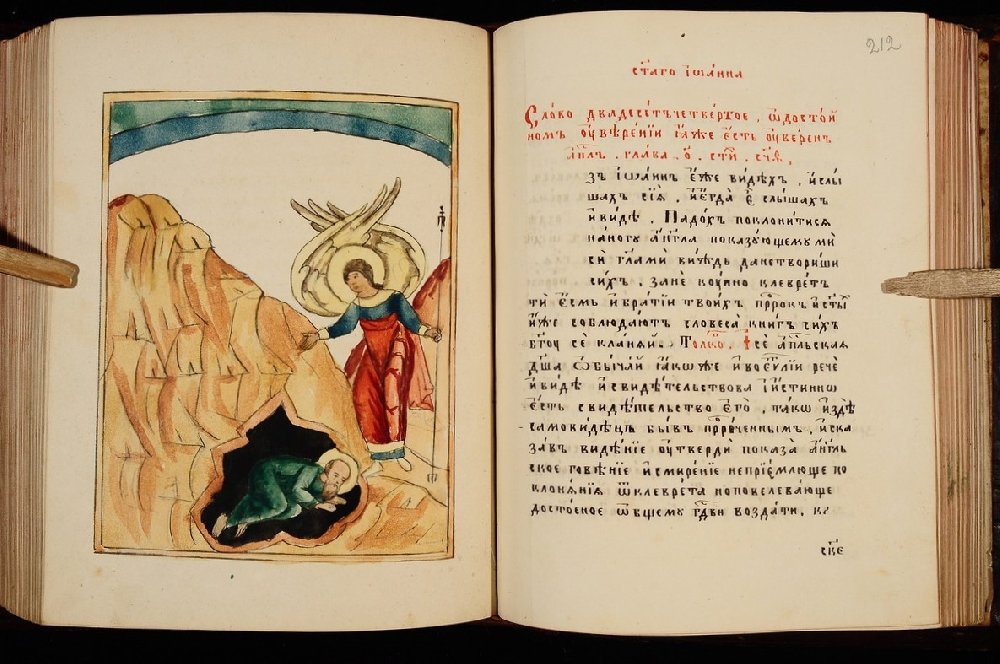 212
ст҃аго іѡа́нна
Сло́во двадесѣтъчетвертое, ѿдосто́й
номъ ѹ҆вѣре́нїи та́же є҆сть ѹ҆веренъ
а҆п҃лъ. глава. о҃. ст҃и. с҃і҃ѧ.
зъ і҆ѡа́ннъ є҆́же ви́дѣхъ, и҆слы
шахъ сїѧ̀, и҆є҆гда̀ слы́шахъ
и҆ви́дѣ. падо́хъ поклони́тисѧ
на́ногу а҆́нг҃ла показу́ющему мѝ
сѝ гл҃а мѝ ви́ждь дане́твориши
си́хъ. занѐ ку́пно клевре́тъ
ти є҆́смь и҆бра́тїи твои́хъ прⷪ҇ро́къ и҆
и҆̀же соблюда́ютъ словеса̀ кни́гъ си́хъ
бг҃у сѐ кла́нѧи. Толко́. сѐ а҆п҃льскаѧ
дш҃а ѡ҆бы́чай ꙗ҆́коже и҆воє҆у҃лїи речѐ
и҆ви́дѣ и҆свидѣ́тельствова и҆и҆́стинно
є҆́сть свидѣ́тельство є҆гѡ̀, та́кѡ и҆здѣ̀
самови́децъ бы́въ прⷪ҇рече́ннымъ, и҆ска
за́въ видѣ́нїе ѹ҆твердѝ показа̀ а҆́нг҃ль
ское говѣ́нїе и҆смире́нїе непрїе́млюще по
клонѧ́нїѧ ѿклевре́та нопокелевающе
досто́еное ѡ҆́бщему гдⷭ҇ви возда́ти,
скⷡ҇є